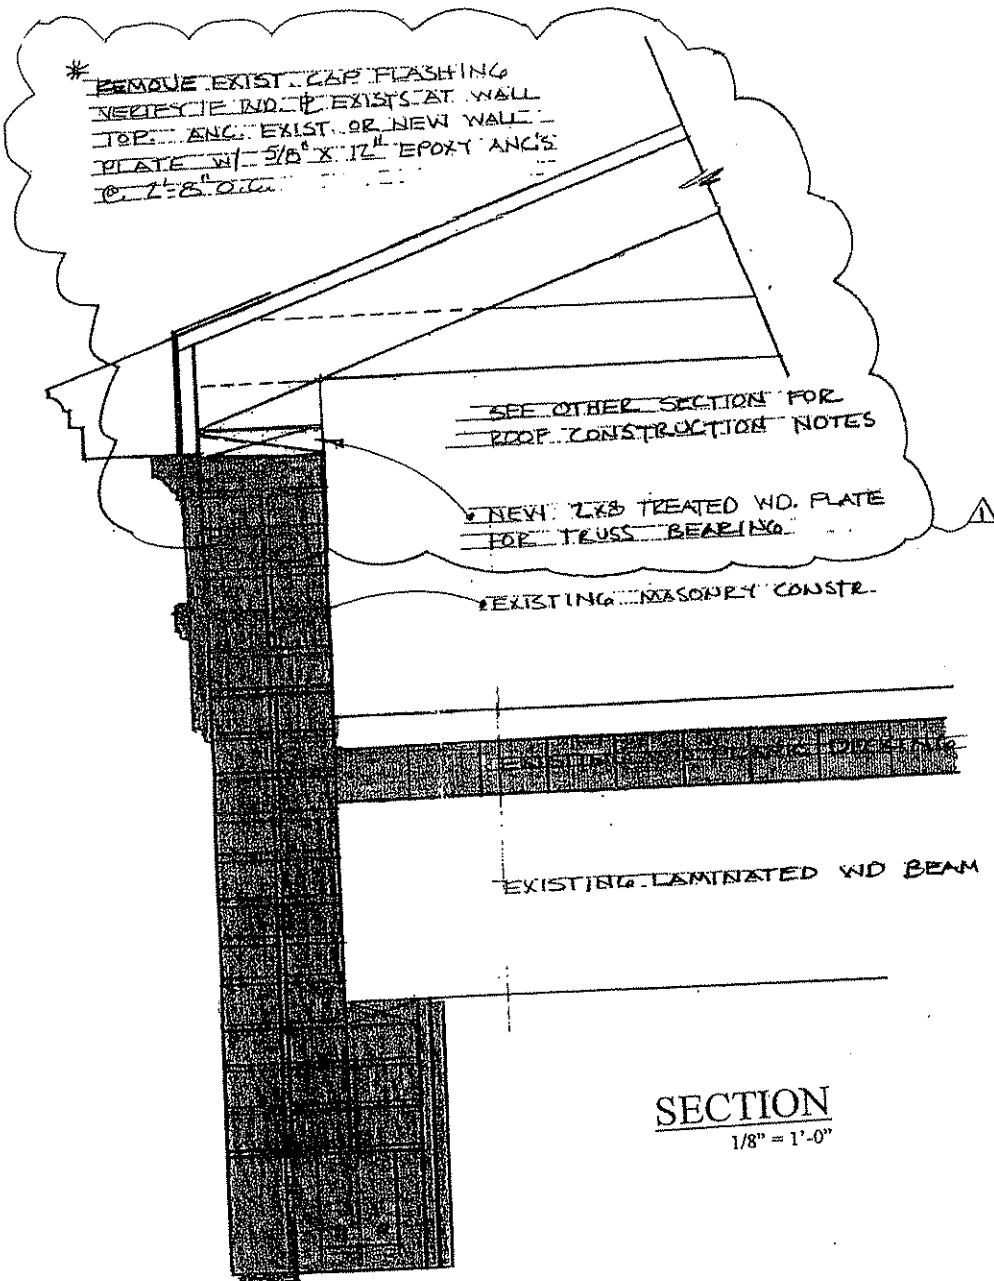 * REMOVE EXIST. CAP FLASHING
VERIFY IF WD. PL EXISTS AT WALL
TOP. ANC. EXIST. OR NEW WALL
PLATE W/ 5/8" X 12" EPOXY ANC'S
@ 2'-8" O.C.
SEE OTHER SECTION FOR
ROOF CONSTRUCTION NOTES
NEW 2X8 TREATED WD. PLATE
FOR TRUSS BEARING
1
EXISTING MASONRY CONSTR.
EXISTING DECKING
EXISTING LAMINATED WD BEAM
SECTION
1/8" = 1'-0"